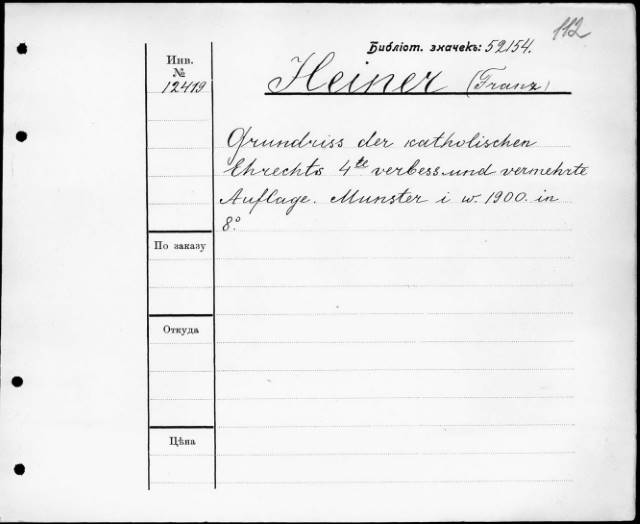 112
Библіот. значекъ: 52154.
Инв.
№
12419
Heiner (Franz)
Grundriss der katholischen
Ehrechts 4te verbess. und vermehrte
Auflage. Munster i w. 1900. in
8°
По заказу
Откуда
Цѣна